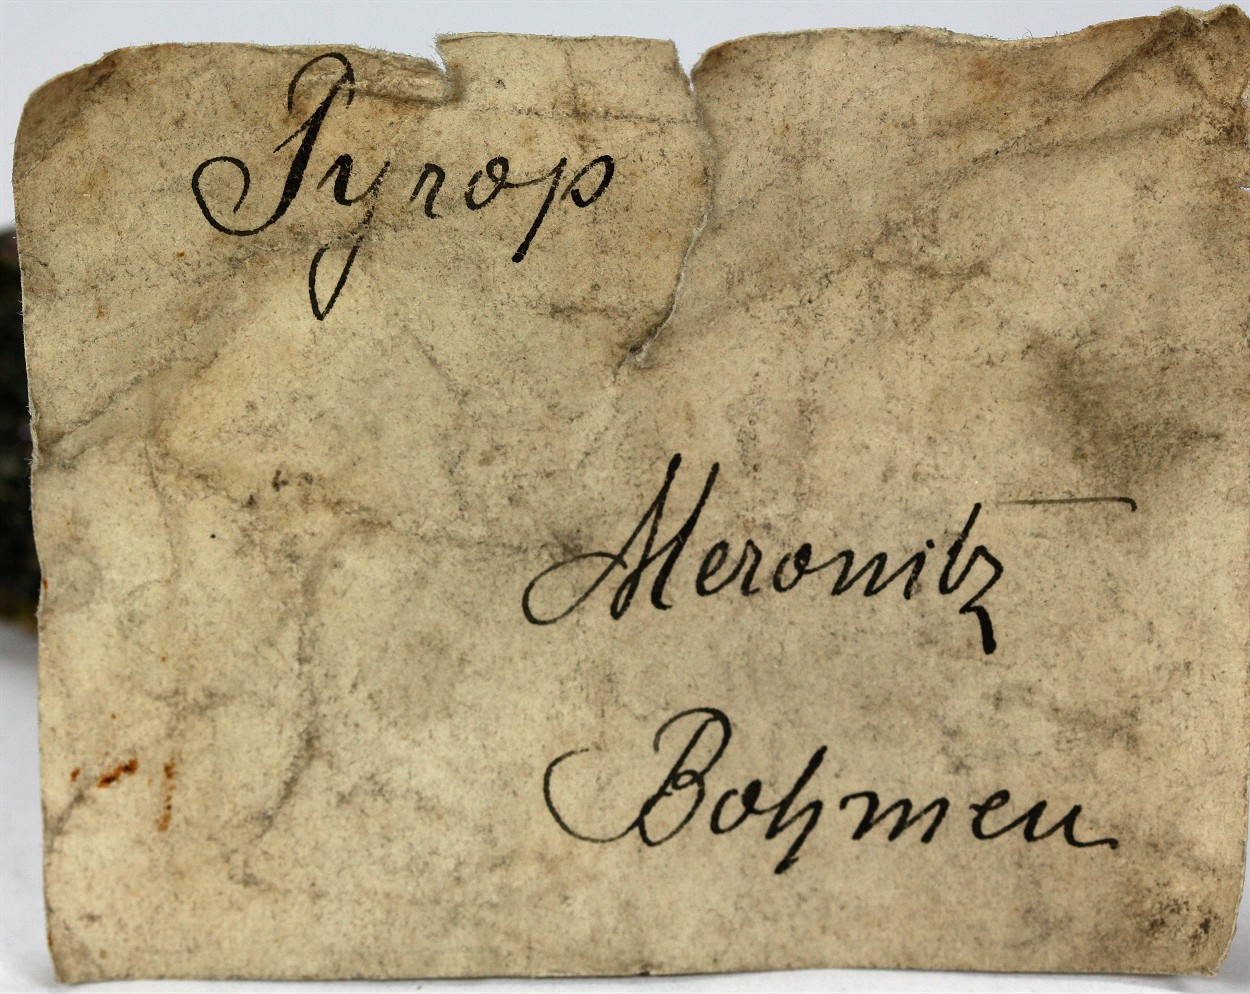 Pyrop
Meronitz
Bohmen